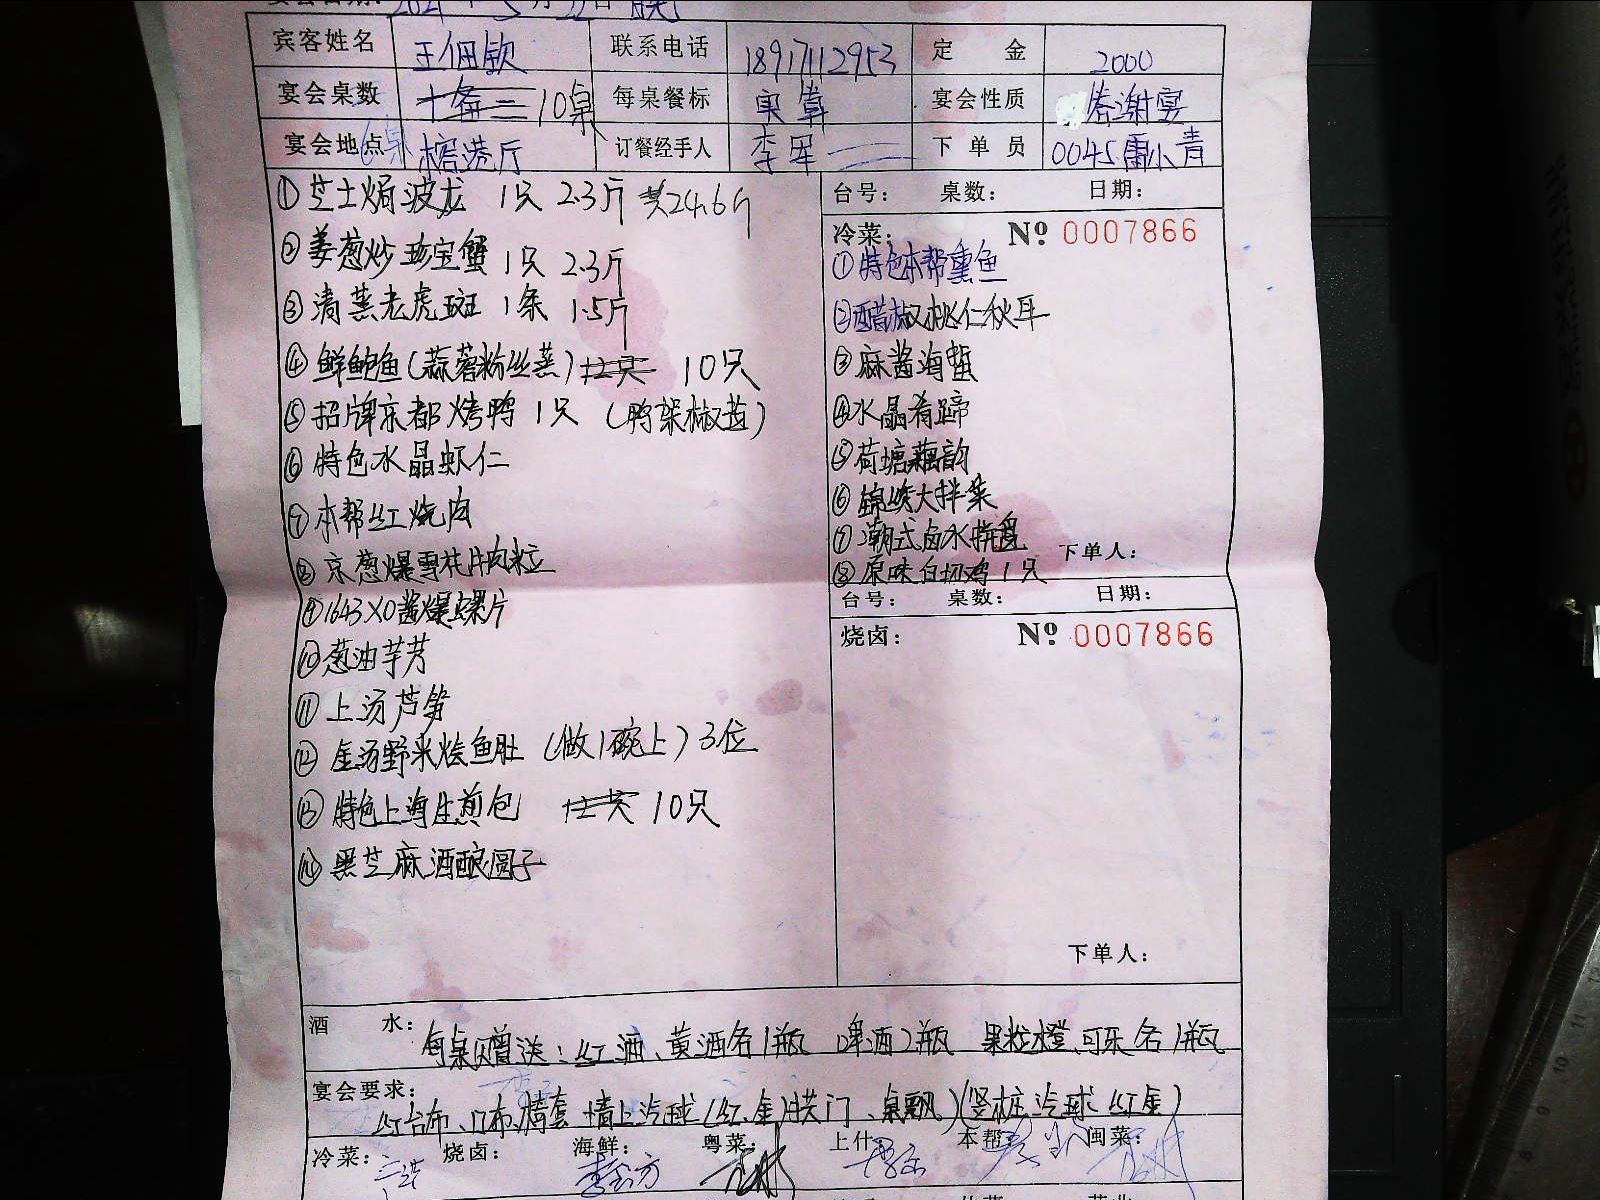 宾客姓名 王佃钦 联系电话 18917112953 定 金 2000
宴会桌数 10桌 每桌餐标 宴会性质 答谢宴
宴会地点 榕港厅 订餐经手人 李军 下 单 员 0045 小青
①芝士焗波龙 1只 2.3斤 共24.6斤
②姜葱炒珍宝蟹 1只 2.3斤
③清蒸老虎斑 1条 1.5斤
④鲜鲍鱼(蒜蓉粉丝蒸) 10只
⑤招牌京都烤鸭 1只 (鸭架椒盐)
⑥特色水晶虾仁
⑦本帮红烧肉
⑧京葱爆雪花牛肉粒
⑨1643XO酱爆螺片
⑩葱油芋艿
⑪上汤芦笋
⑫金汤野米烩鱼肚 (做1碗上) 3位
⑬特色上海生煎包 10只
⑭黑芝麻酒酿圆子
台号: 桌数: 日期:
冷菜: Nº 0007866
①特色本帮熏鱼
②醋椒桃仁秋耳
③麻酱海蜇
④水晶肴蹄
⑤荷塘藕韵
⑥锦绣大拌菜
⑦潮式卤水拼盘
下单人:
⑧原味白切鸡 1只
台号: 桌数: 日期:
烧卤: Nº 0007866
下单人:
酒 水: 每桌赠送:红酒、黄酒各1瓶 啤酒2瓶 果粒橙、可乐各1瓶
宴会要求:
红台布、口布、椅套 墙上汽球(红、金)拱门、桌飘)(竖桩汽球 红金)
冷菜: 烧卤: 海鲜: 粤菜: 上什: 本帮: 闽菜: